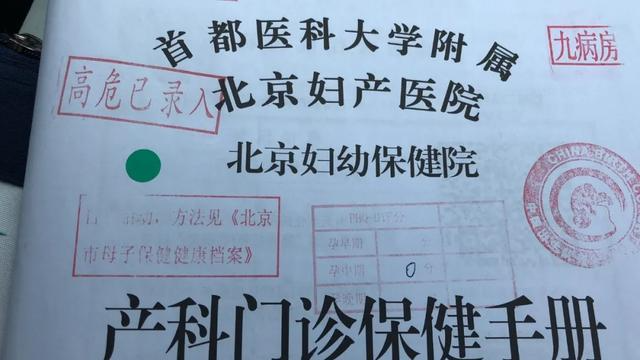 首都医科大学附属
九病房
高危已录入
北京妇产医院
北京妇幼保健院
CHINA
方法见《北京
市母子保健健康档案》
孕早期 分
孕中期 0分
产科门诊保健手册